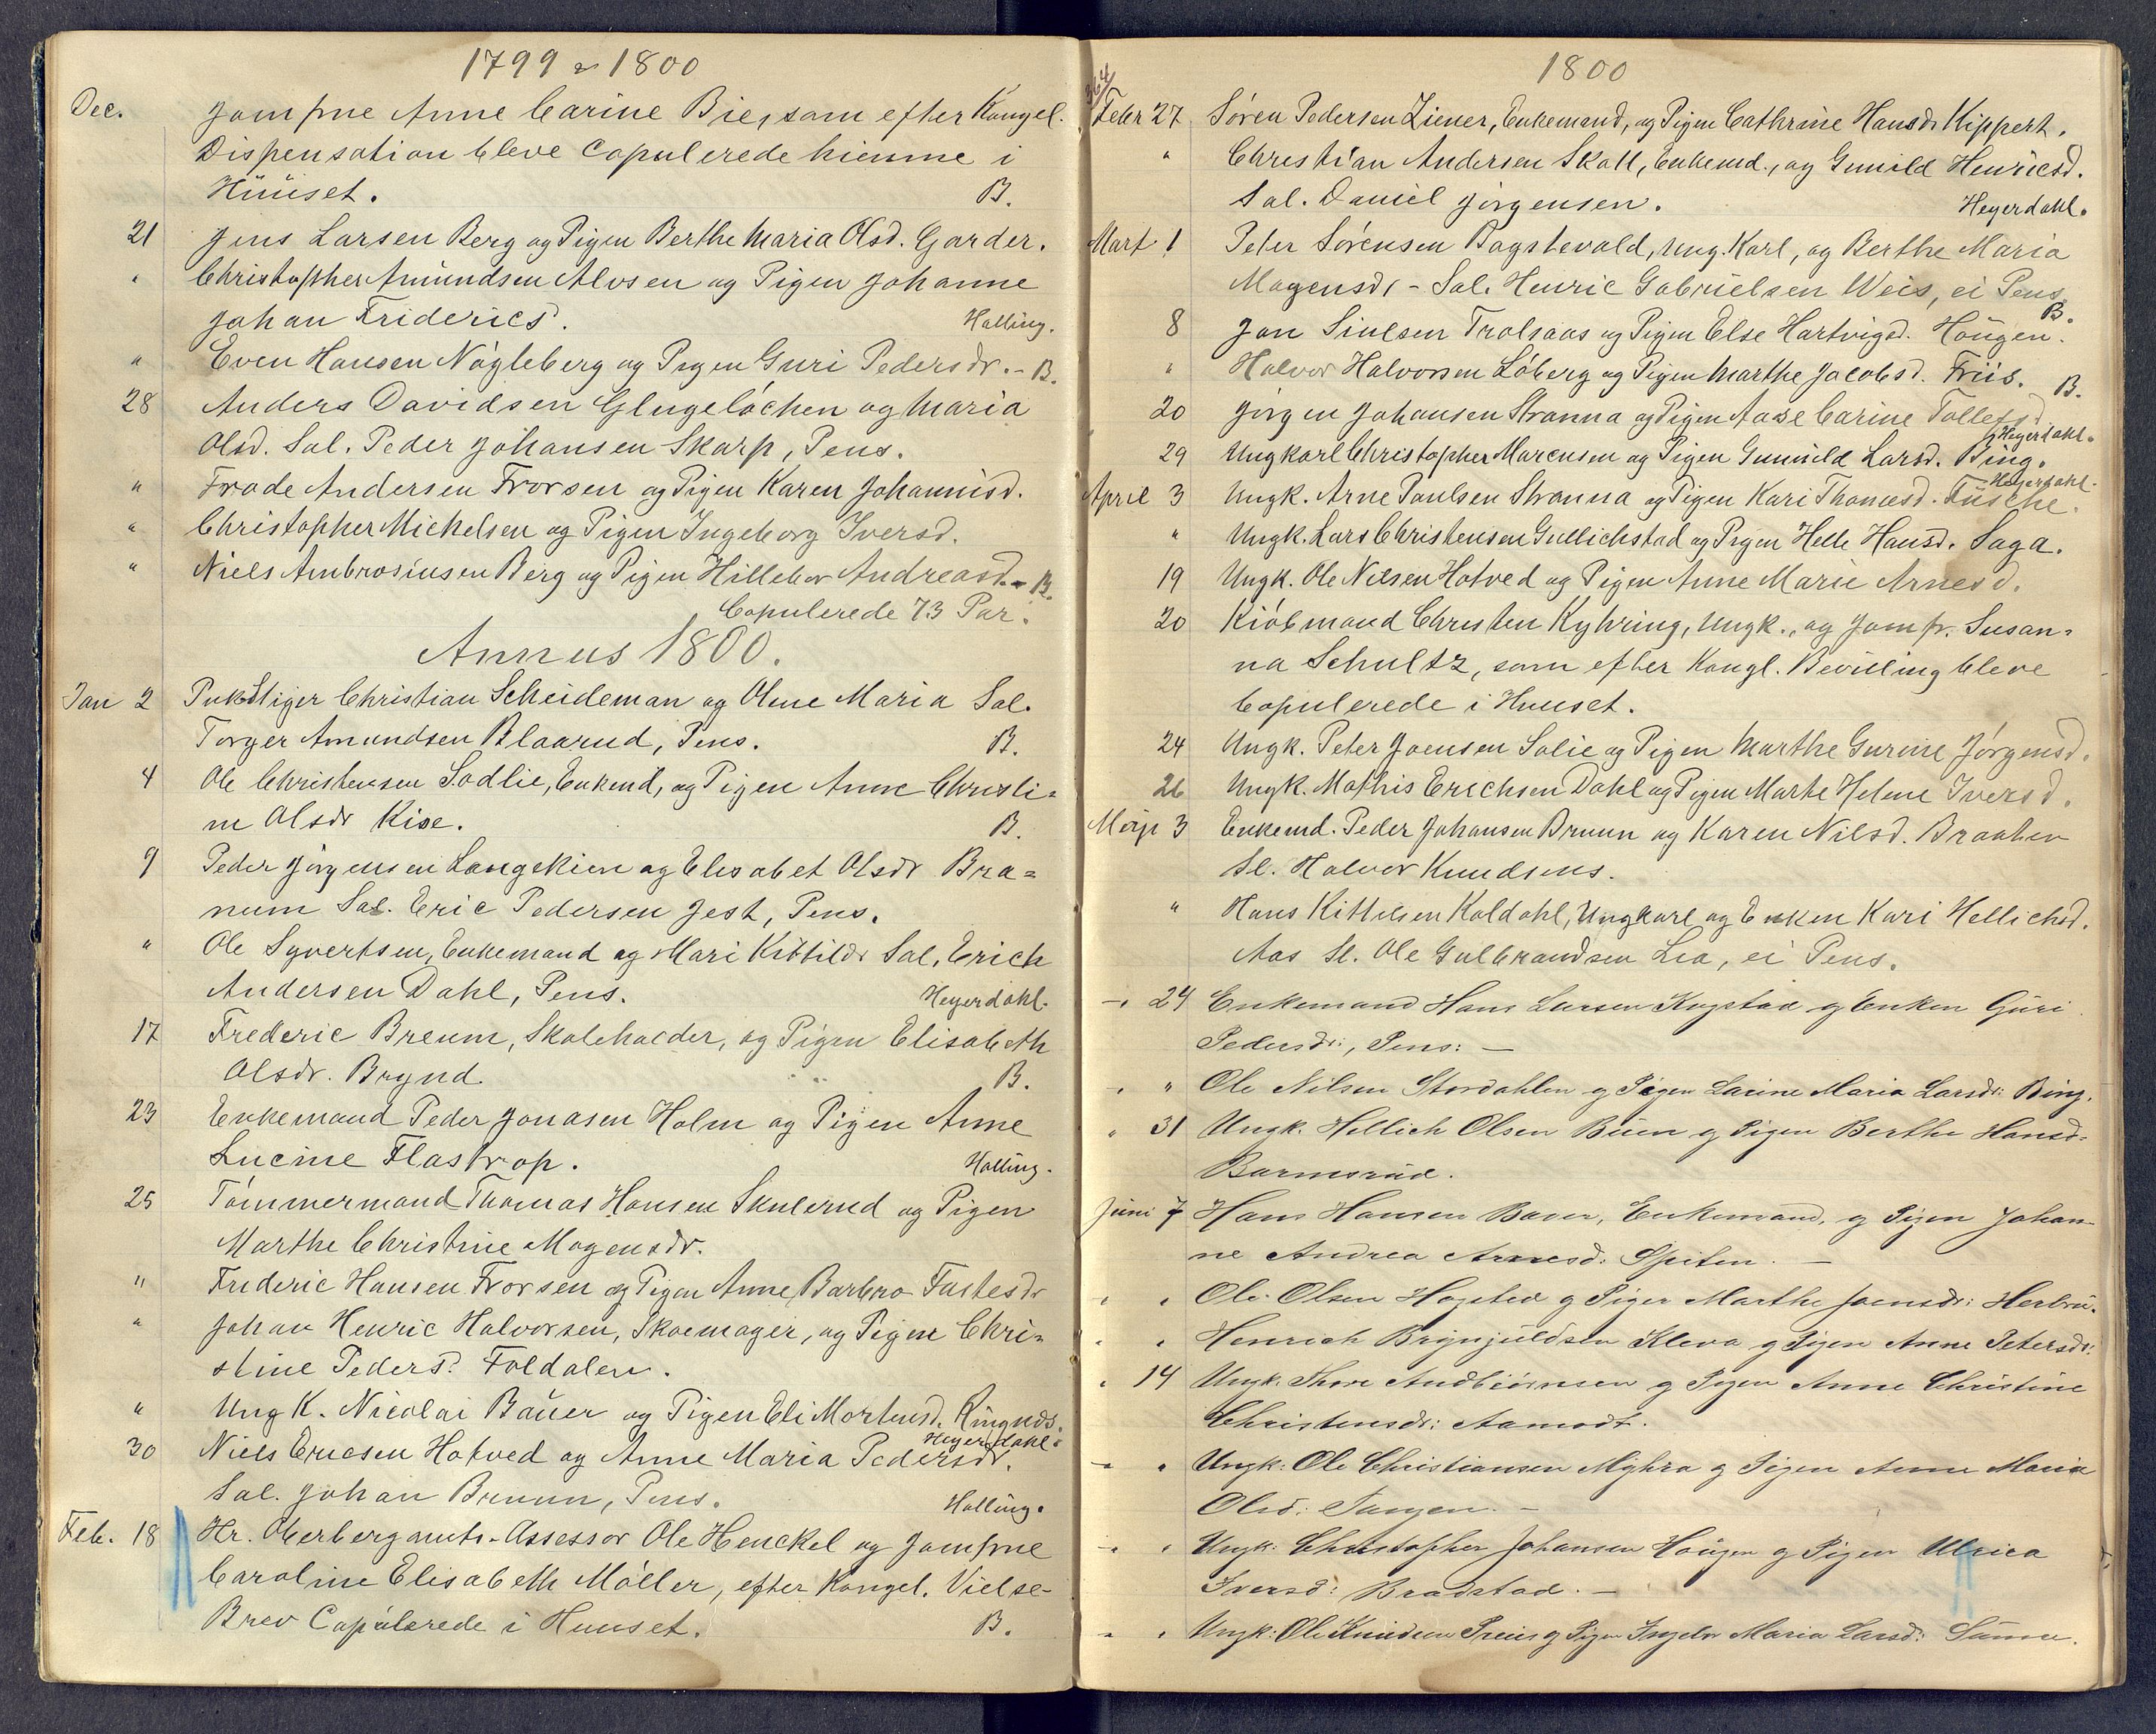 1799 & 1800
Dec. Jomfrue Anne Carine Bie, som efter Kongel.
Dispensation bleve Copulerede hiemme i
Hüüset. B.
21 Jens Larsen Berg og Pigen Berthe Maria Olsd. Garder.
" Christopher Amündsen Alvsen og Pigen Johanne
Johan Friderics d. Halling.
" Even Hansen Nøgleberg og Pigen Guri Pedersdr. - B.
28 Anders Davidsen Glugeløchen og Maria
Olsd. Sal. Peder Johansen Skarp, Pens.
" Frade Andersen Frorsen og Pigen Karen Johannisd.
" Christopher Michelsen og Pigen Ingeborg Iversd.
" Niels Ambrosiusen Berg og Pigen Hillebor Andreasd. - B.
Copulerede 73 Par.
Annus 1800.
Jan 2 Pukstiger Christian Scheideman og Olene Maria Sal.
Torger Amundsen Blaarud, Pens. B.
4 Ole Christensen Sodlie, Enkemd, og Pigen Anne Christi=
ne Olsdr Kise. B.
9 Peder Jørgensen Langekien og Elisabet Olsdr Bra=
num Sal. Eric Pedersen Jest, Pens.
" Ole Syvertsen, Enkemand og Mari Kittilds Sal. Erich
Andersen Dahl, Pens. Heyerdahl.
17 Frederic Breum, Skoleholder, og Pigen Elisabeth
Olsdr. Brynd. B.
23 Enkemand Peder Jonasen Holm og Pigen Anne
Lucine Flastrop. Halling.
25 Tømmermand Thomas Hansen Skulerud og Pigen
Marthe Christine Mogensdr.
" Frideric Hansen Frorsen og Pigen Anne Barbro Fastesdr
" Johan Henric Halvorsen, Skoemager, og Pigen Chri=
stine Pedersd. Foldalen.
" Ung K. Nicolai Baüer og Pigen Eli Mortensd. Ringnds.
Heyerdahl.
30 Niels Ericsen Hotved og Anne Maria Pedersdr.
Sal. Johan Bruun, Pens. Halling.
Feb. 18 Hr. Oberbergamts-Assessor Ole Henckel og Jomfrue
Caroline Elisabeth Møller, efter Kongel. Vielse-
Brev Copülerede i Huuset. B.
1800
364
Febr 27 Søren Pedersen Ziener, Enkemand, og Pigen Cathrine Hansdr Kippert.
" Christian Andersen Skall, Enkemd., og Gunild Henricsd.
Sal. Daniel Jørgensen. Heyerdahl.
Mart 1 Peter Sørensen Bagstevold, Ung. Karl, og Berthe Maria
Mogensdr - Sal. Henric Gabrielsen Weis, ei Pens
B.
8 Jon Siulsen Trolsaas og Pigen Else Hartvigsd. Hougen.
" Halvor Halvorsen Løberg og Pigen Marthe Jacobsd. Friis. B.
20 Jørgen Johansen Stranna og Pigen Aase Carine Tollefsd
Heyerdahl.
29 Ungkarl Christopher Marcusen og Pigen Gunnild Larsd. Bing.
Heyerdahl.
April 3 Ungk. Arne Paulsen Stranna og Pigen Kari Thomasd. Füsche.
" Ungk. Lars Christensen Gullichstad og Pigen Helle Hansd. Saga.
19 Ungk. Ole Nilsen Hotved og Pigen Anne Marie Arnesd.
20 Kiøbmand Christen Kyhring, Ungk., og Jomfr. Susan=
na Schultz, som efter Kongl. Bevilling bleve
Copulerede i Huuset.
24 Ungk. Peter Joensen Solie og Pigen Marthe Gurine Jørgensd.
26 Ungk. Mathis Erichsen Dahl og Pigen Marte Helene Iversd.
Maji 3 Enkemd. Peder Johansen Bruun og Karen Nilsd. Braaten
Sl. Halvor Knudsens.
" Hans Kittelsen Koldahl, Ungkarl og Enken Kari Hellichsd.
Aas Sl. Ole Gulbrandsen Lia, ei Pens.
- 24 Enkemand Hans Larsen Kogstad og Enken Güri
Pedersdr:, Pens: —
- " Ole Nilsen Stordahlen og Pigen Larine Maria Larsdr: Bing.
" 31 Ungk. Hellich Olsen Büen og Pigen Berthe Hansd:
Barmsrüd.
Juni 7 Hans Hansen Baver, Enkemand, og Pigen Johan-
ne Andrea Arnesd: Spiten. —
- " Ole Olsen Hogsted og Piger Marthe Joensdr: Herbrü.
" " Henrich Brynjüldsen Kleva og Pigen Anne Petersdr:
" 14 Ungk. Thore Andbiørnsen og Pigen Anne Christine
Christensdr: Aamodt.
- " Ungk: Ole Christiansen Myhra og Pigen Anne Maria
Olsd: Tangen. —
- " Ungk: Christopher Johansen Hougen og Pigen Ulrica
Iversd: Bradstad. —
- " Ungk: Ole Knudsen Preüs og Pigen Ingebor Maria Larsd: Sünne.